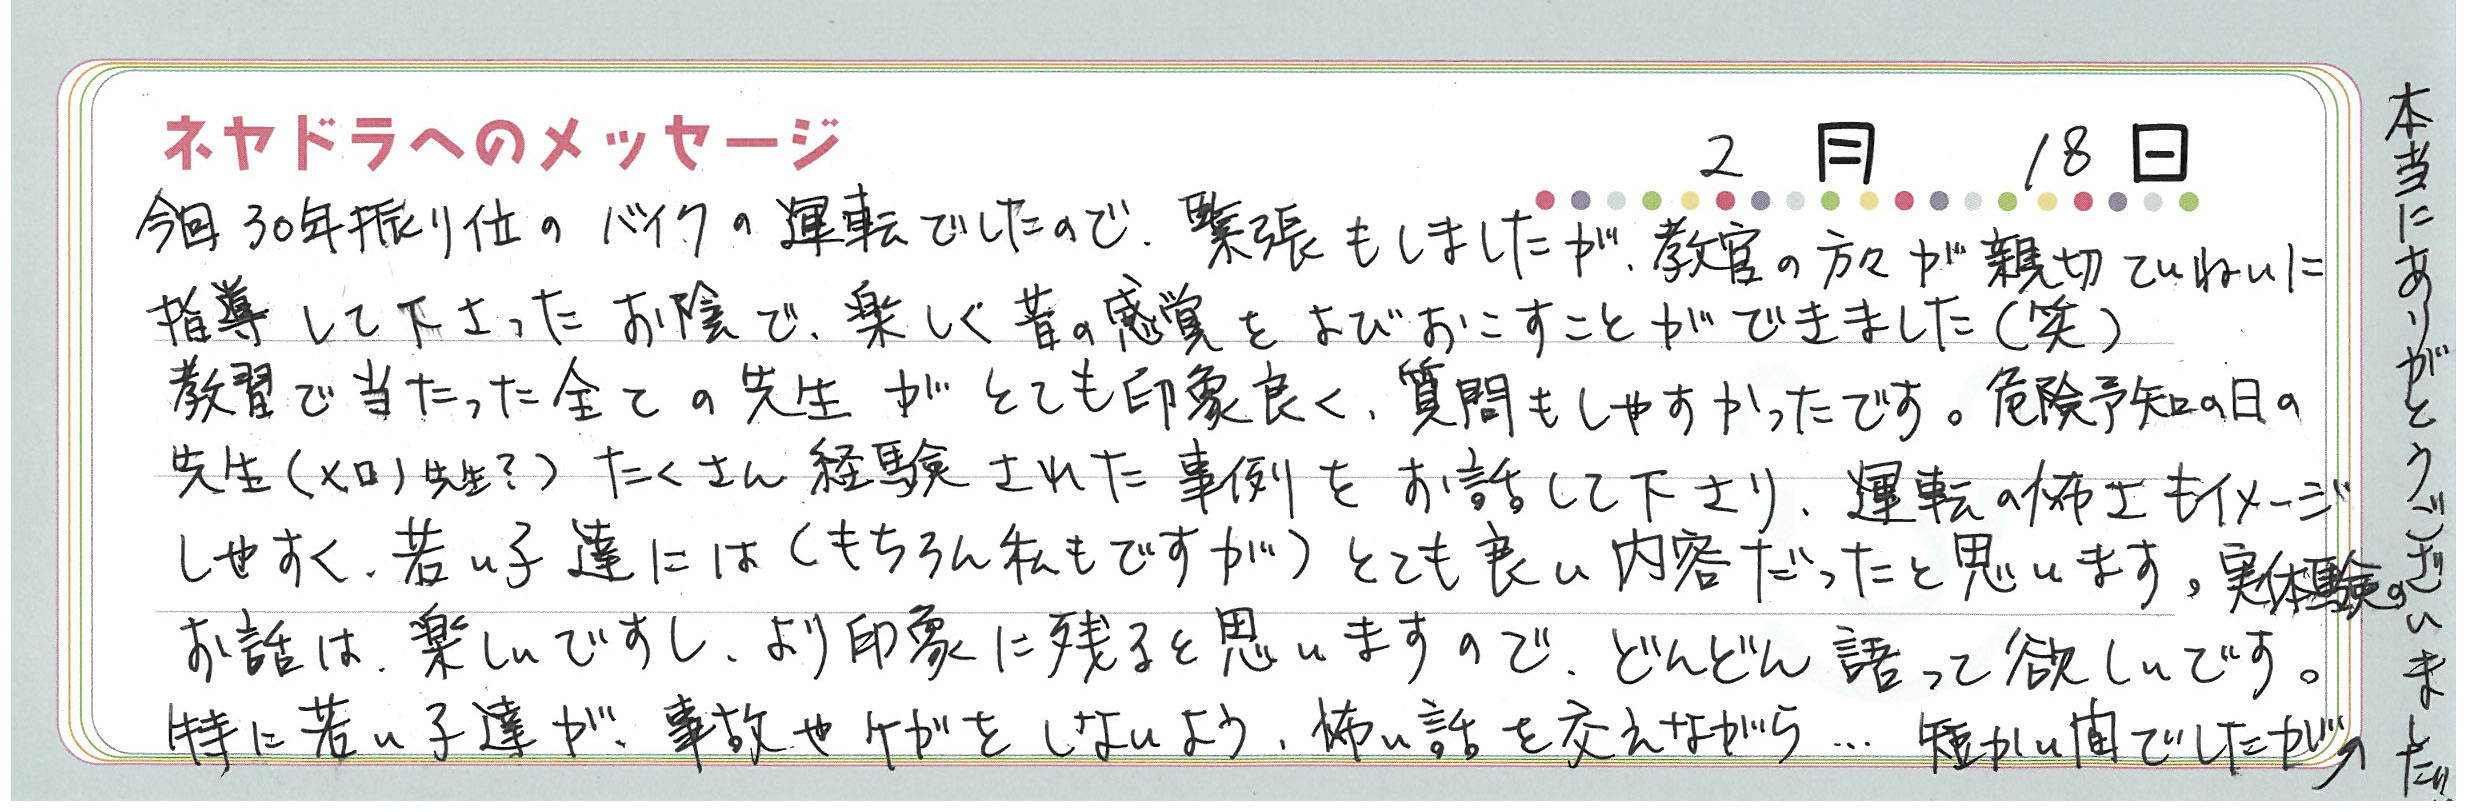 ネヤドラへのメッセージ
2月 18日
今回30年振り位のバイクの運転でしたので、緊張もしましたが、教官の方々が親切ていねいに
指導して下さったお陰で、楽しく昔の感覚をよびおこすことができました(笑)
教習で当たった全ての先生がとても印象良く、質問もしやすかったです。危険予知の日の
先生(メロ)先生?)たくさん経験された事例をお話して下さり、運転の怖さもイメージ
しやすく、若い子達には(もちろん私もですが)とても良い内容だったと思います。実体験の
お話は、楽しいですし、より印象に残ると思いますので、どんどん語って欲しいです。
特に若い子達が、事故やケガをしないよう、怖い話を交えながら… 短かい間でしたが↗
本当にありがとうございました